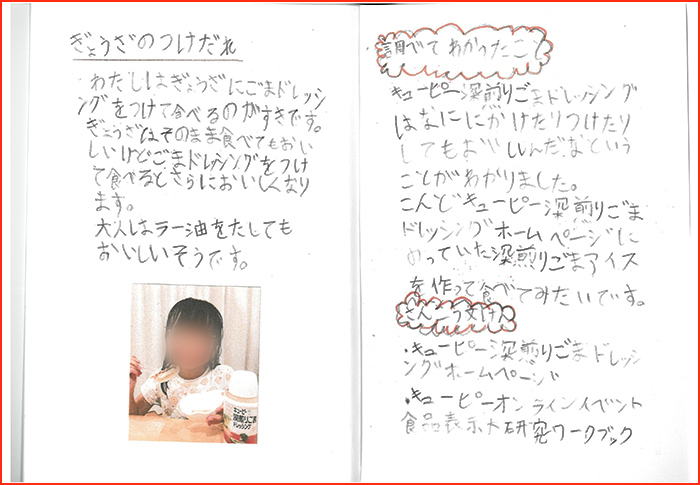 ぎょうざのつけだれ
わたしはぎょうざにごまドレッシ
ングをつけて食べるのがすきです。
ぎょうざはそのまま食べてもおい
しいけどごまドレッシングをつけ
て食べるとさらにおいしくなり
ます。
大人はラー油をたしても
おいしいそうです。
キユーピー
深煎りごま
ドレッシング
調べてわかったこと
キューピー深煎りごまドレッシング
はなににかけたりつけたり
してもおいしいんだなという
ことがわかりました。
こんどキューピー深煎りごま
ドレッシングホームページに
のっていた深煎りごまアイス
を作って食べてみたいです。
さんこう文けん
・キューピー深煎りごまドレッシ
ングホームページ
・キューピーオンラインイベント
食品表示大研究ワークブック